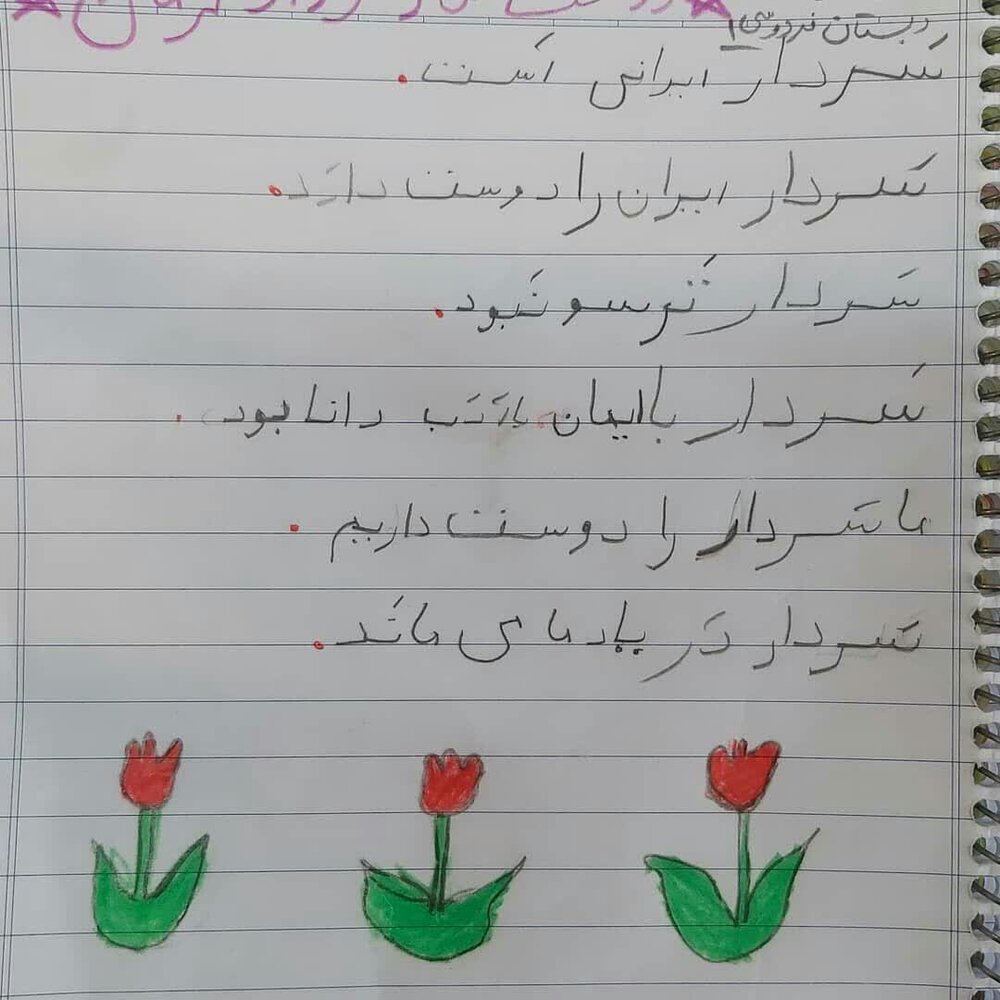 دبستان فردوسی ۱
سَردار ایرانی اَست.
سَردار ایران را دوست دارَد.
سَردار تَرسو نَبود.
سَردار با ایمان. با اَدَب دانا بود.
ما سَردار را دوست داریم.
سَردار دَر یاد ما می مانَد.